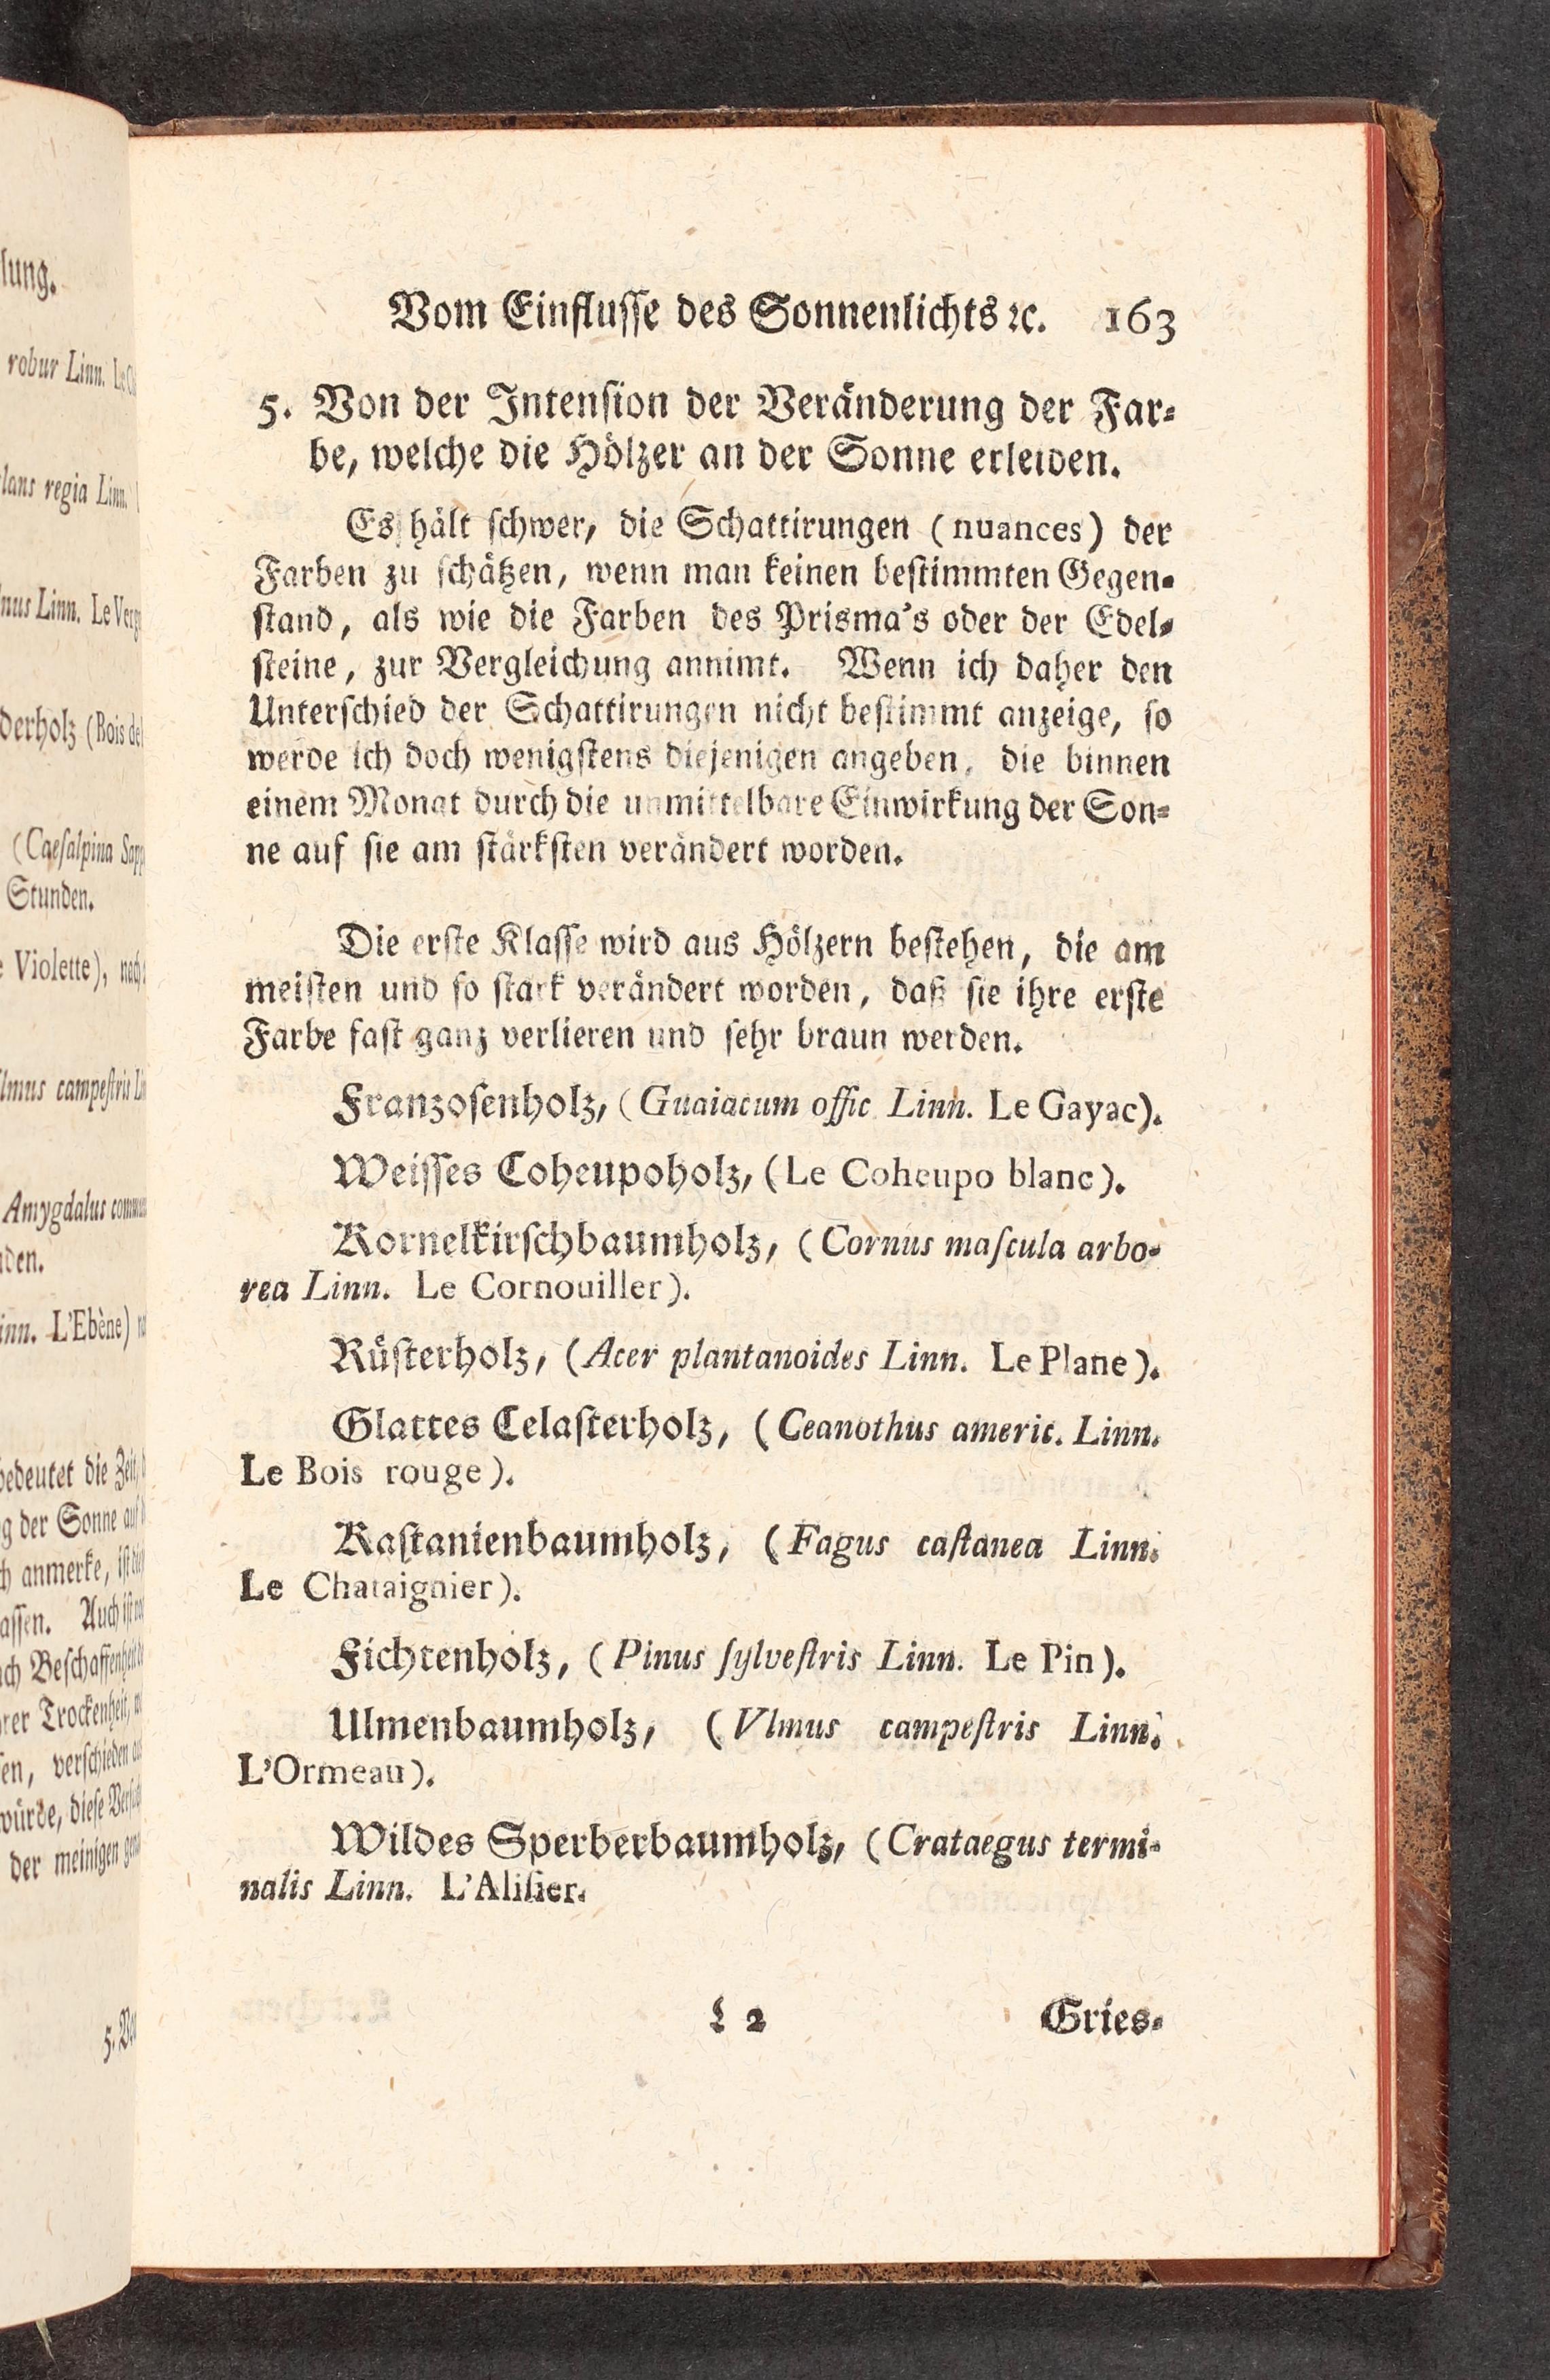 lung.
robur Linn.
lans regia Linn.
nus Linn.
derholz (Bois de
(Caeſalpina
Stunden.
Violette),
lmus campeſtris
Amygdalus
den.
inn. L'Ebène)
bedeutet die Zeit,
g der Sonne auf
ch anmerke,
aſſen. Auch iſt
ach Beſchaffenheit
rer Trockenheit,
ſen, verſchieden
würde, dieſe
der meinigen
Vom Einfluſſe des Sonnenlichts ꝛc. 163
5. Von der Intenſion der Veränderung der Far⸗
be, welche die Hölzer an der Sonne erleiden.
Es hält ſchwer, die Schattirungen (nuances) der
Farben zu ſchätzen, wenn man keinen beſtimmten Gegen⸗
ſtand, als wie die Farben des Prisma's oder der Edel⸗
ſteine, zur Vergleichung annimt. Wenn ich daher den
Unterſchied der Schattirungen nicht beſtimmt anzeige, ſo
werde ich doch wenigſtens diejenigen angeben, die binnen
einem Monat durch die unmittelbare Einwirkung der Son⸗
ne auf ſie am ſtärkſten verändert worden.
Die erſte Klaſſe wird aus Hölzern beſtehen, die am
meiſten und ſo ſtark verändert worden, daß ſie ihre erſte
Farbe faſt ganz verlieren und ſehr braun werden.
Franzoſenholz, (Guaiacum offic Linn. Le Gayac).
Weiſſes Coheupoholz, (Le Coheupo blanc).
Kornelkirſchbaumholz, (Cornus maſcula arbo⸗
rea Linn. Le Cornouiller).
Rüſterholz, (Acer plantanoides Linn. Le Plane).
Glattes Celaſterholz, (Ceanothus americ. Linn.
Le Bois rouge).
Kaſtanienbaumholz, (Fagus caſtanea Linn.
Le Chataignier).
Fichtenholz, (Pinus ſylveſtris Linn. Le Pin).
Ulmenbaumholz, (Vlmus campeſtris Linn.
L'Ormeau).
Wildes Sperberbaumholz, (Crataegus termi⸗
nalis Linn. L'Aliſier.
L 2 Gries⸗